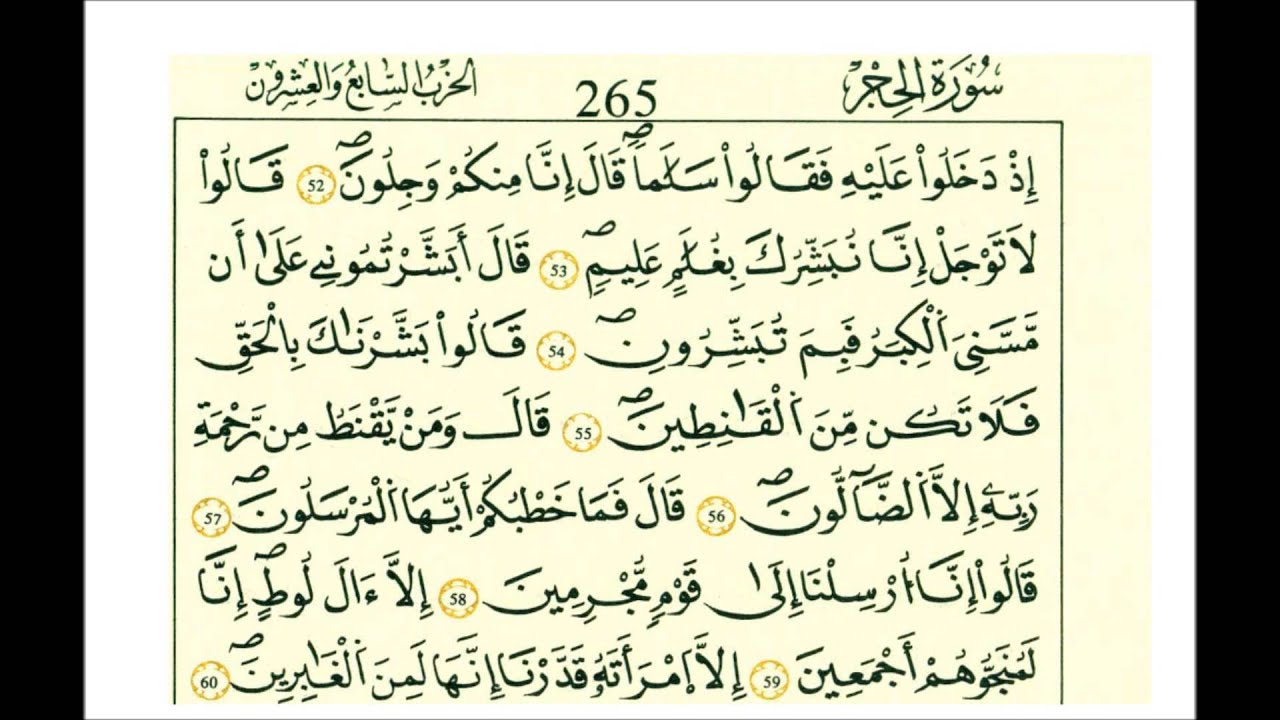 سُورَةُ الحِجْرِ
265
الحزبُ السَّابِعُ وَالعِشْرُونَ
إِذْ دَخَلُواْ عَلَيْهِ فَقَالُواْ سَلَٰماًۖ قَالَ إِنَّا مِنكُمْ وَجِلُونَۖ 52 قَالُواْ
لَا تَوْجَلْ إِنَّا نُبَشِّرُكَ بِغُلَٰمٍ عَلِيمٍۖ 53 قَالَ أَبَشَّرْتُمُونِے عَلَىٰ أَن
مَّسَّنِىَ اَ۬لْكِبَرُ فَبِمَ تُبَشِّرُونِۖ 54 قَالُواْ بَشَّرْنَٰكَ بِالْحَقِّ
فَلَا تَكُن مِّنَ اَ۬لْقَٰنِطِينَۖ 55 قَالَ وَمَنْ يَّقْنَطُ مِن رَّحْمَةِ
رَبِّهِۦٓ إِلَّا اَ۬لضَّآلُّونَۖ 56 قَالَ فَمَا خَطْبُكُمْ أَيُّهَا اَ۬لْمُرْسَلُونَۖ 57
قَالُواْ إِنَّا أُرْسِلْنَا إِلَىٰ قَوْمٍ مُّجْرِمِينَ 58 إِلَّا ءَالَ لُوطٍۖ إِنَّا
لَمُنَجُّوهُمْ أَجْمَعِينَ 59 إِلَّا اَ۪مْرَأَتَهُۥ قَدَّرْنَا إِنَّهَا لَمِنَ اَ۬لْغَٰبِرِينَۖ 60